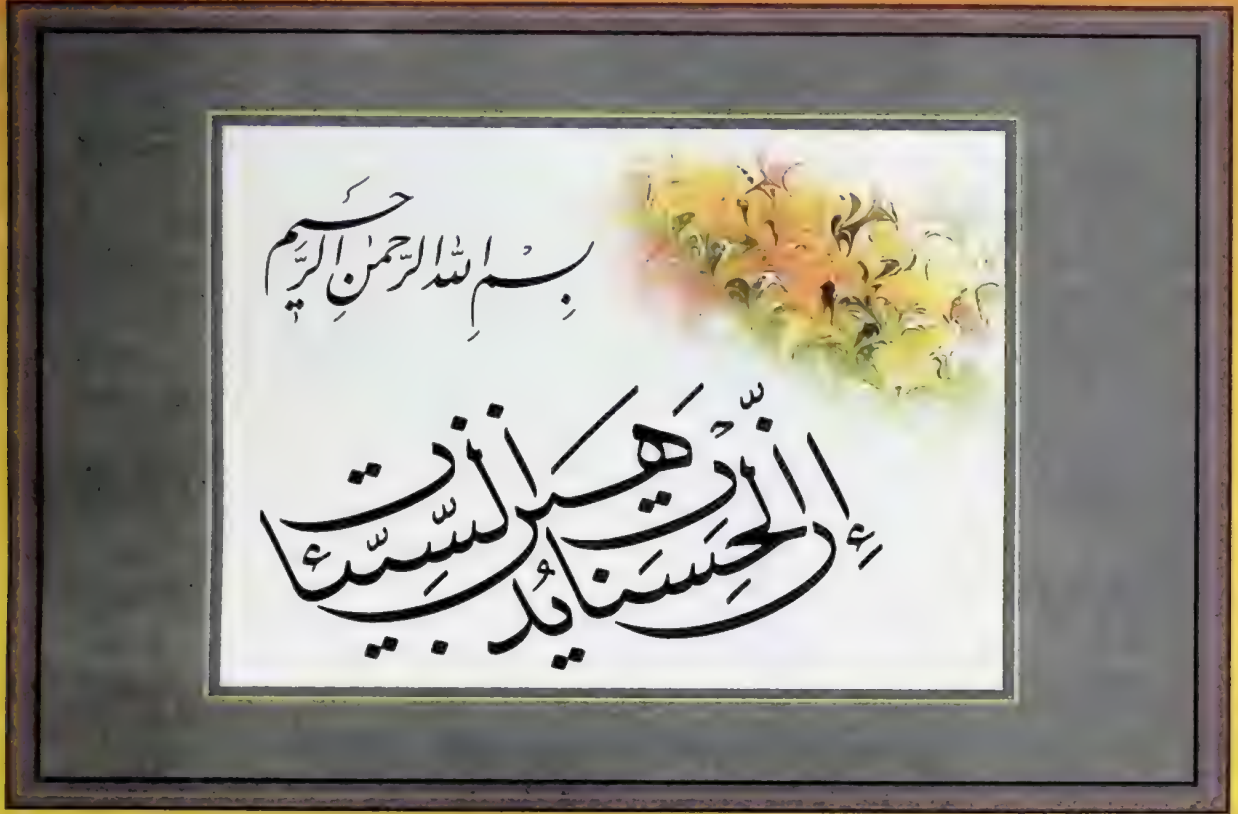 بِسْمِ اللهِ الرَّحمٰنِ الرَّحيم
إِنَّ الْحَسَنَاتِ يُذْهِبْنَ السَّيِّئَاتِ